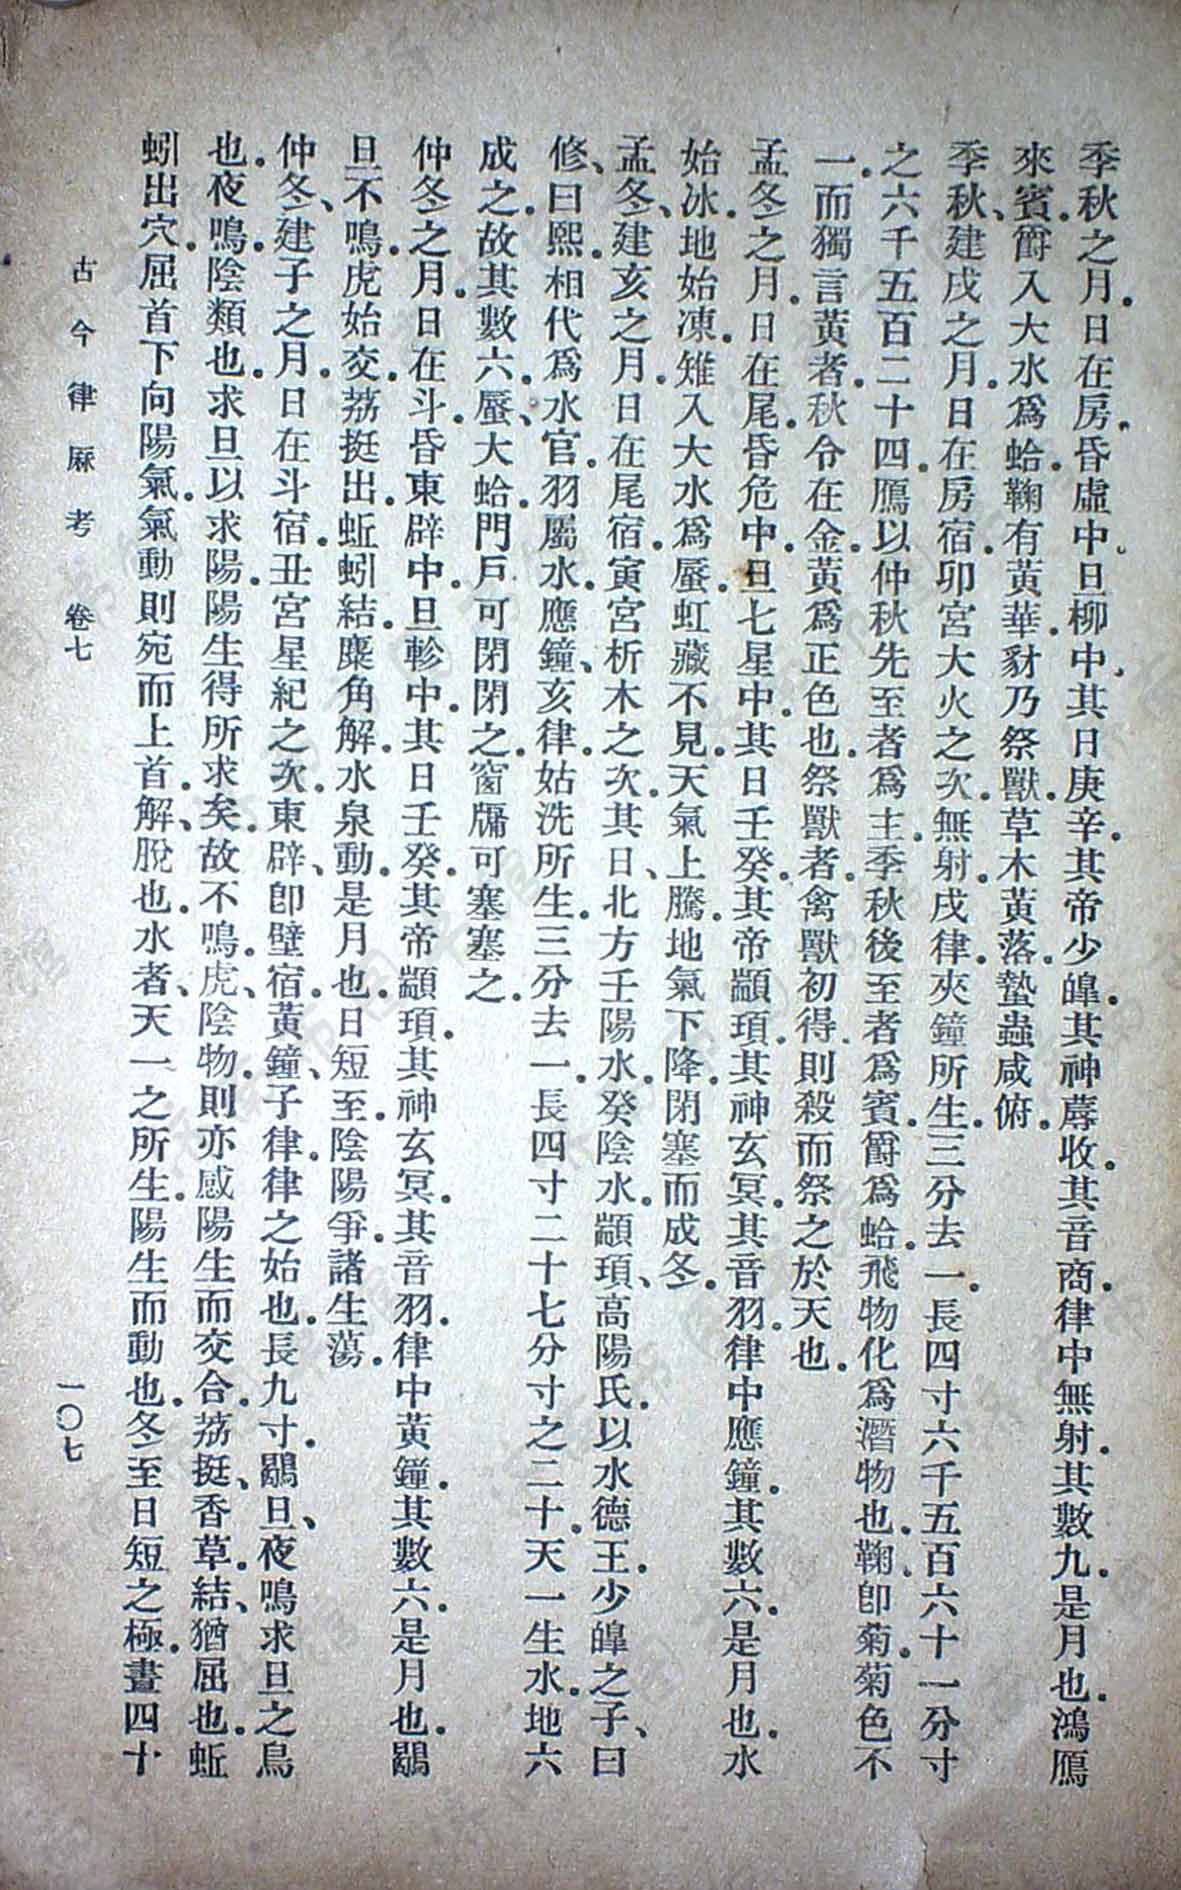 季秋之月。日在房。昏虛中。旦柳中。其日庚辛。其帝少皞。其神蓐收。其音商。律中無射。其數九。是月也。鴻鴈
來賓。爵入大水爲蛤。鞠有黃華。豺乃祭獸。草木黃落。蟄蟲咸俯。
季秋、建戌之月。日在房宿。卯宮大火之次。無射。戌律。夾鐘所生。三分去一。長四寸六千五百六十一分寸
之六千五百二十四。鴈以仲秋先至者爲主。季秋後至者爲賓。爵爲蛤。飛物化爲潛物也。鞠、卽菊。菊色不
一。而獨言黃者。秋令在金。黃爲正色也。祭獸者。禽獸初得。則殺而祭之於天也。
孟冬之月。日在尾。昏危中。旦七星中。其日壬癸。其帝顓頊。其神玄冥。其音羽。律中應鐘。其數六。是月也。水
始冰。地始凍。雉入大水爲蜃。虹藏不見。天氣上騰。地氣下降。閉塞而成冬。
孟冬、建亥之月。日在尾宿。寅宮析木之次。其日、北方壬陽水。癸陰水。顓頊、高陽氏。以水德王。少皞之子、曰
修、曰熙。相代爲水官。羽屬水。應鐘、亥律。姑洗所生。三分去一。長四寸二十七分寸之二十。天一生水。地六
成之。故其數六。蜃、大蛤。門戶可閉閉之。窗牖可塞塞之。
仲冬之月。日在斗。昏東辟中。旦軫中。其日壬癸。其帝顓頊。其神玄冥。其音羽。律中黃鐘。其數六。是月也。鶡
旦不鳴。虎始交。荔挺出。蚯蚓結。麋角解。水泉動。是月也。日短至。陰陽爭。諸生蕩。
仲冬、建子之月。日在斗宿。丑宮星紀之次。東辟、卽壁宿。黃鐘、子律。律之始也。長九寸。鶡旦、夜鳴求旦之鳥
也。夜鳴。陰類也。求旦以求陽。陽生得所求矣。故不鳴。虎、陰物。則亦感陽生而交合。荔挺、香草。結、猶屈也。蚯
蚓出穴。屈首下向陽氣。氣動則宛而上首。解、脫也。水者、天一之所生。陽生而動也。冬至日短之極。晝四十
古今律厤考 卷七
一〇七